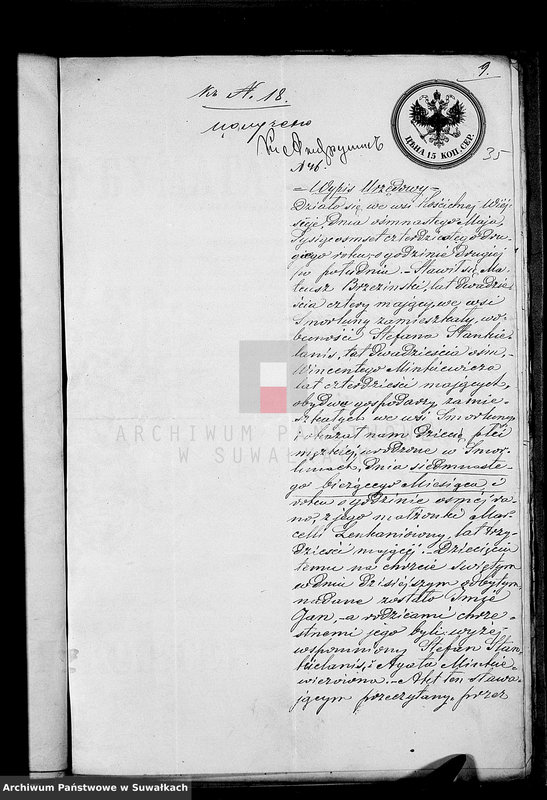 9.
Къ А. 18.
получено
ЦѢНА 15 КОП. СЕР.
35
N 46.
= Wypis Urzędowy =
Działo się we wsi Kościelnej Wiej-
sieje, Dnia ośmnastego Maja,
Tysiąc ośmset czterdziestego dru-
giego roku o godzinie drugiej
po południu. - Stawił się Ma-
teusz Brzezinski, lat dwadzie-
ścia cztery mający, we wsi
Smorluny zamieszkały, w o-
becności Stefana Stankie-
lanis, lat dwadzieścia ośm,
Wincentego Minkiewicza
lat czterdzieści mających,
obydwa gospodarzy, zamie-
szkałych we wsi Smorluny
i okazał nam Dziecię płci
męzkiej, urodzone w Smor-
lunach, dnia siedmnaste-
go bieżącego Miesiąca i
roku o godzinie osmej ra-
no, z jego małżonki Mar-
celli Zenkaniówny, lat trzy-
dzieści mającej. - Dziecięciu
temu na chrzcie swiętym
w dniu dzisiejszym odbytym,
nadane zostało Imię
Jan, - a rodzicami chrze-
stnemi jego byli wyżej
wspomniony Stefan Stan-
kielanis, i Agata Minkie-
wiczowna. - Akt ten stawa-
jącym przeczytany, przez
ARCHIWUM PAŃSTWOWE
W SUWAŁKACH
Archiwum Państwowe w Suwałkach